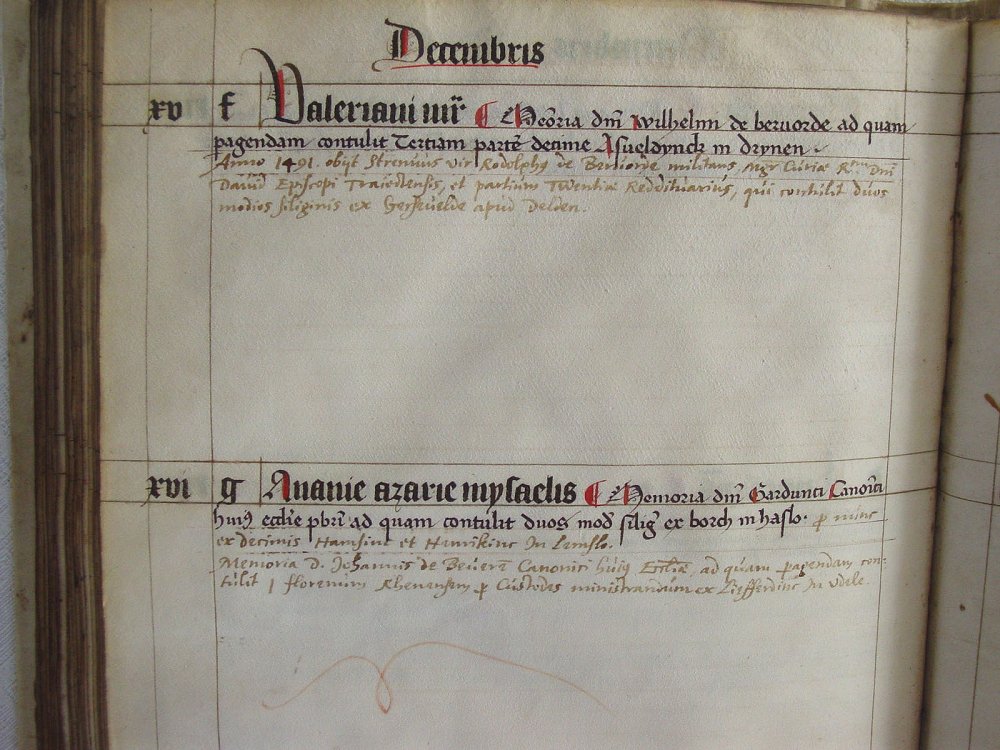 Decembris
xv f Valeriani mr̄ ¶ Meōria dm̄ wilhelmi de beruorde ad quam
pagendam contulit Tertiam partē decime Asueldynck in drynen
Anno 1491. obijt Strenuus vir Rodolphꝰ de Beruorde militaris, Magr Curiæ R.mi Dni
David Episcopi Traiectensis, et partium Twentiæ Reddituarius, qui contulit duos
modios siliginis ex apud Delden.
xvi g Ananie azarie mysaelis ¶ Memoria dm̄ Garbunti Canoīci
huiꝰ ecclīe pbrī ad quam contulit duos mod siligꝭ ex borch in haslo. ꝓ nunc
ex decimis Hamsinc et Henrikinc In Lemslo.
Memoria D. Johannis de Beuerē Canonici huiꝰ Eccliæ, ad quam pagendam con-
tulit 1 florenum Rhenensem ꝑ Custodes ministrandum ex Liefferdinc In Udele.